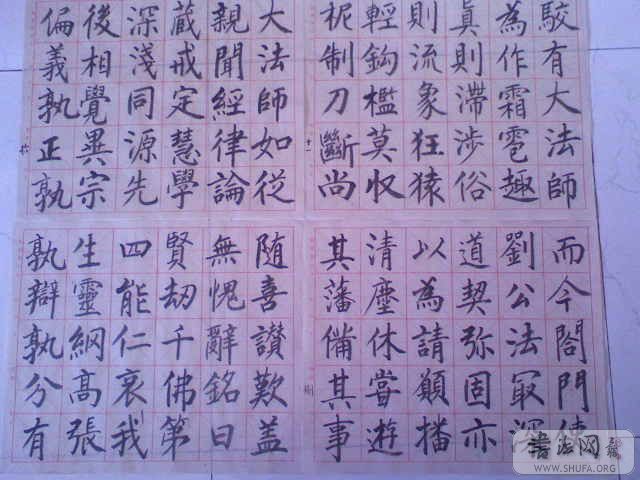 駮有大法師
為作霜雹趣
真則滯涉俗
則流象狂猿
輕鈎檻莫收
柅制刀斷尚
大法師如從
親聞經律論
藏戒定慧學
深淺同源先
後相覺異宗
偏義孰正孰
而今閤門使
劉公法冣深
道契弥固亦
以為請願播
清塵休甞遊
其藩備其事
随喜讃歎盖
無愧辭銘曰
賢劫千佛第
四能仁哀我
生靈網髙張
孰辯孰分有
書法网
WWW.SHUFA.ORG